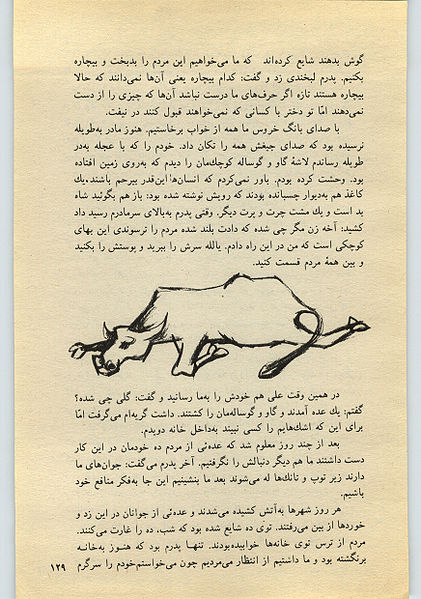 گوش بدهند شایع کرده‌اند که ما می‌خواهیم این مردم را بدبخت و بیچاره
بکنیم. پدرم لبخندی زد و گفت: کدام بیچاره یعنی آن‌ها نمی‌دانند که حالا
بیچاره هستند تازه اگر حرف‌های ما درست نباشد آن‌ها که چیزی را از دست
نمی‌دهند امّا تو دختر با کسانی که نمی‌خواهند قبول کنند در نیفت.
با صدای بانگ خروس ما همه از خواب برخاستیم. هنوز مادر به‌طویله
نرسیده بود که صدای جیغش همه را تکان داد. خودم را که با عجله به‌در
طویله رساندم لاشهٔ گاو و گوساله کوچك‌مان را دیدم که به‌روی زمین افتاده
بود. وحشت کرده بودم. باور نمی‌کردم که انسان‌ها این‌قدر بیرحم باشند، یك
کاغذ هم به‌دیوار چسبانده بودند که رویش نوشته شده بود: باز هم بگوئید شاه
بد است و یك مشت چرت و پرت دیگر. وقتی پدرم به‌بالای سرمادرم رسید داد
کشید: آخه زن مگر چی شده که دادت بلند شده مردم را ترسوندی این بهای
کوچکی است که من در این راه دادم. یالله سرش را ببرید و پوستش را بکنید
و بین همهٔ مردم قسمت کنید.
در همین وقت علی هم خودش را به‌ما رسانید و گفت: گلی چی شده؟
گفتم: یك عده آمدند و گاو و گوساله‌مان را کشتند. داشت گریه‌ام می‌گرفت امّا
برای این که اشك‌هایم را کسی نبیند به‌داخل خانه دویدم.
بعد از چند روز معلوم شد که عده‌ئی از مردم ده خودمان در این کار
دست داشتند ما هم دیگر دنبالش را نگرفتیم. آخر پدرم می‌گفت: جوان‌های ما
دارند زیر توپ و تانك‌ها له می‌شوند بعد ما بنشینیم این جا به‌فکر منافع خود
باشیم.
هر روز شهرها به‌آتش کشیده می‌شدند و عده‌ئی از جوانان در این زد و
خوردها از بین می‌رفتند. توی ده شایع شده بود که شب، ده را غارت می‌کنند.
مردم از ترس توی خانه‌ها خوابیده‌بودند. تنهـا پدرم بود که هنـوز به‌خانـه
برنگشته بود و ما داشتیم از انتظار می‌مردیم چون می‌خواستم‌خودم را سرگرم
۱۲۹